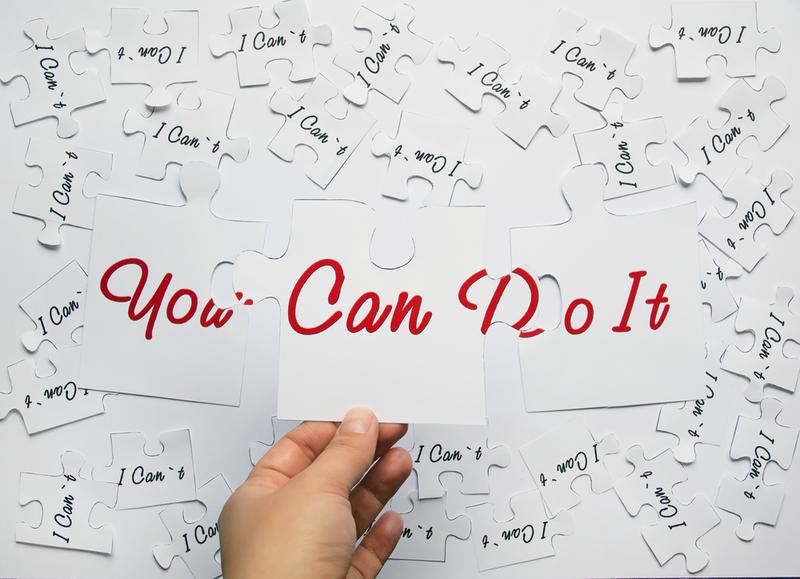 I Can`t
I Can`t
I Can`t
I Can`t
I Can`t
I Can`t
I Can`t
I Can`t
I Can`t
I Can`t
I Can`t
I Can`t
I Can`t
I Can`t
You Can Do It
I Can`t
I Can`t
I Can`t
I Can`t
I Can`t
I Can`t
I Can`t